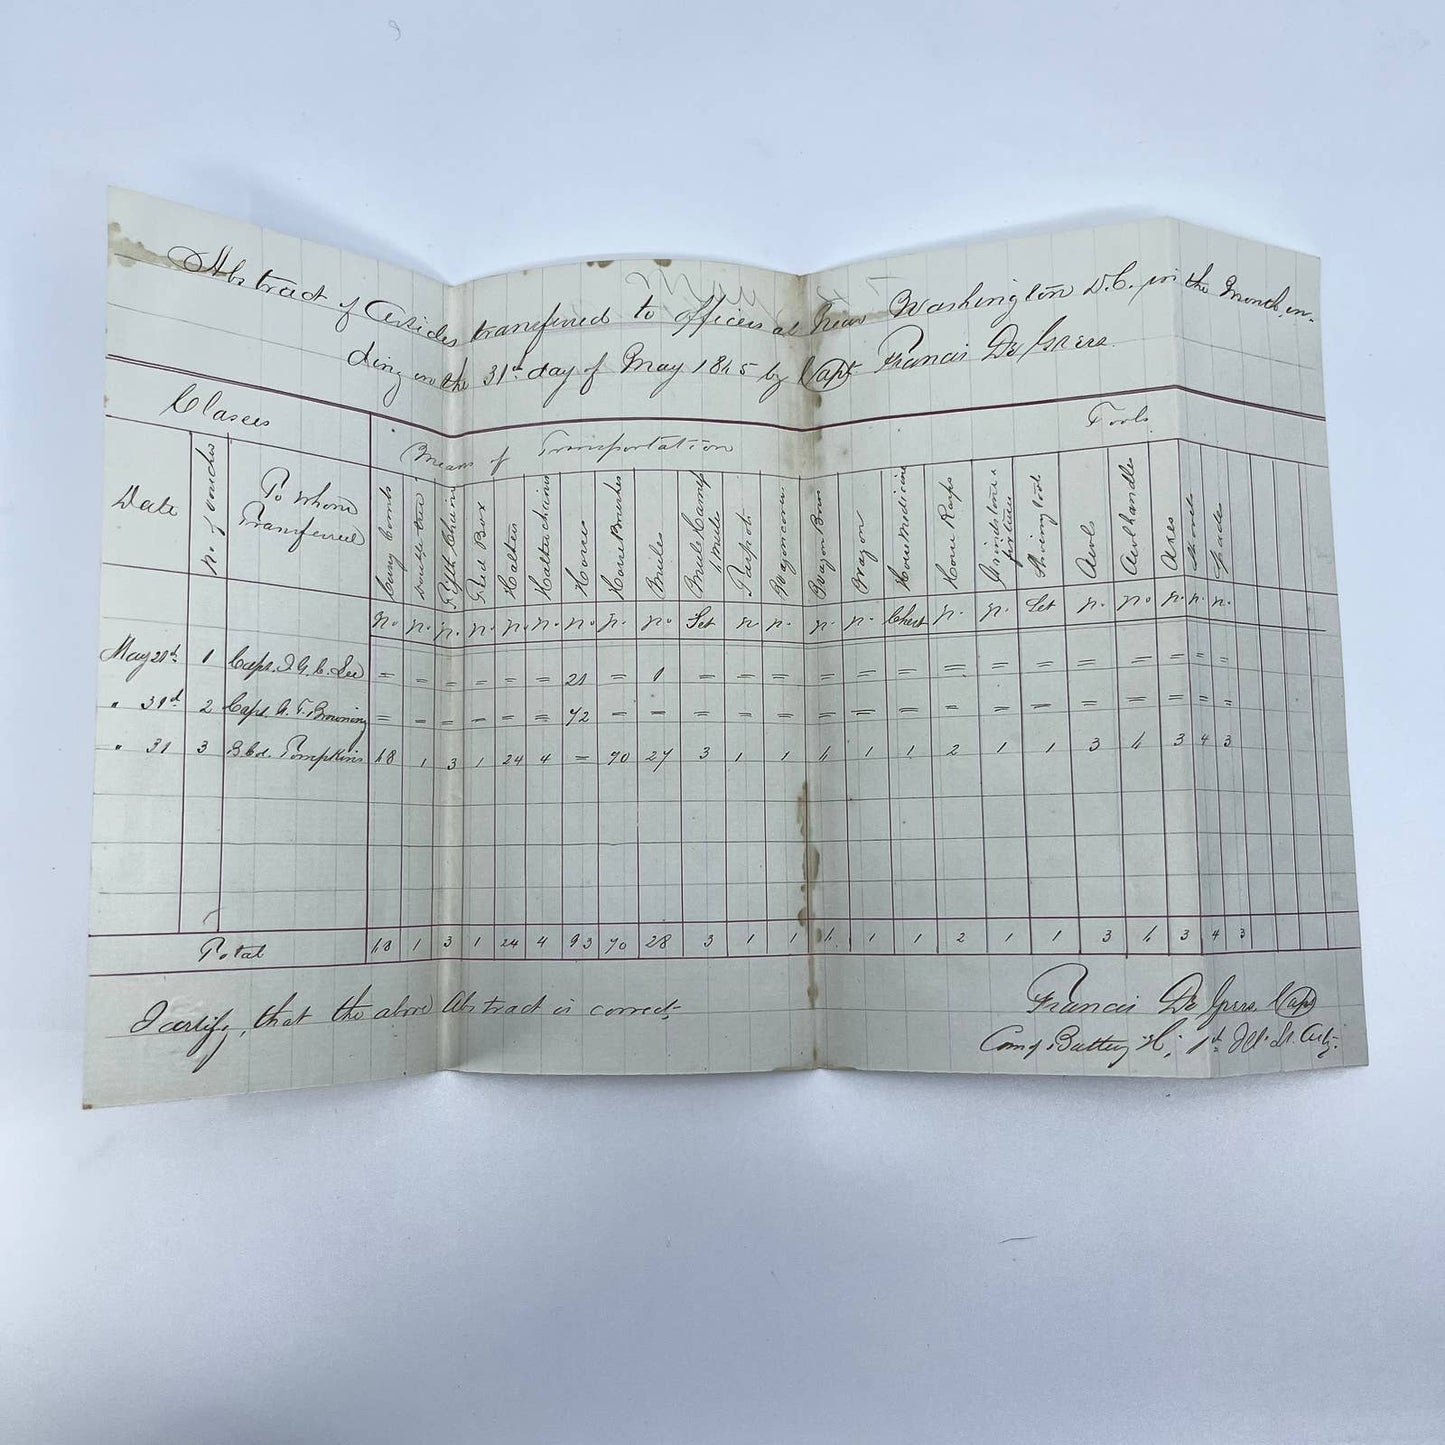 May
Abstract of Articles transferred to officers at near Washington D.C. in the Month, en-
ding on the 31st day of May 1865 by Capt Francis De Gress.
Classes
Means of Transportation
Tools.
Date
No of Voucher
To Whom Transferred
Curry Combs
Double tree
Fifth Chains
Feed Box
Halters
Halter chains
Horses
Horse Brushes
Mules
Mule Harness 4 Mules
Tarpot
Wagon cover
Wagon Bows
Wagon
Horse Medicine
Horse Rasps
Grindstone & fixtures
Shoeing tools
Awls
Awl handles
Axes
Shovels
Spades
No. No. No. No. No. No. No. No. No. Set No. No. No. No. Chest No. No. Set No. No. No. No. No.
May 1 Capt. J. G. C. Lee = = = = = = 21 = 1 = = = = = = = = = = = = = =
" 31d 2 Capt. = = = = = = 72 = = = = = = = = = = = = = = = =
" 31 3 Tompkins 1 3 1 24 4 = 27 3 1 1 1 1 2 1 1 3 3 4 3
Total 1 3 1 24 4 93 28 3 1 1 1 1 2 1 1 3 3 4 3
I certify, that the above Abstract is correct,
Francis De Gress, Capt
Comg Battery H, 1st Ill. Lt. Arty.